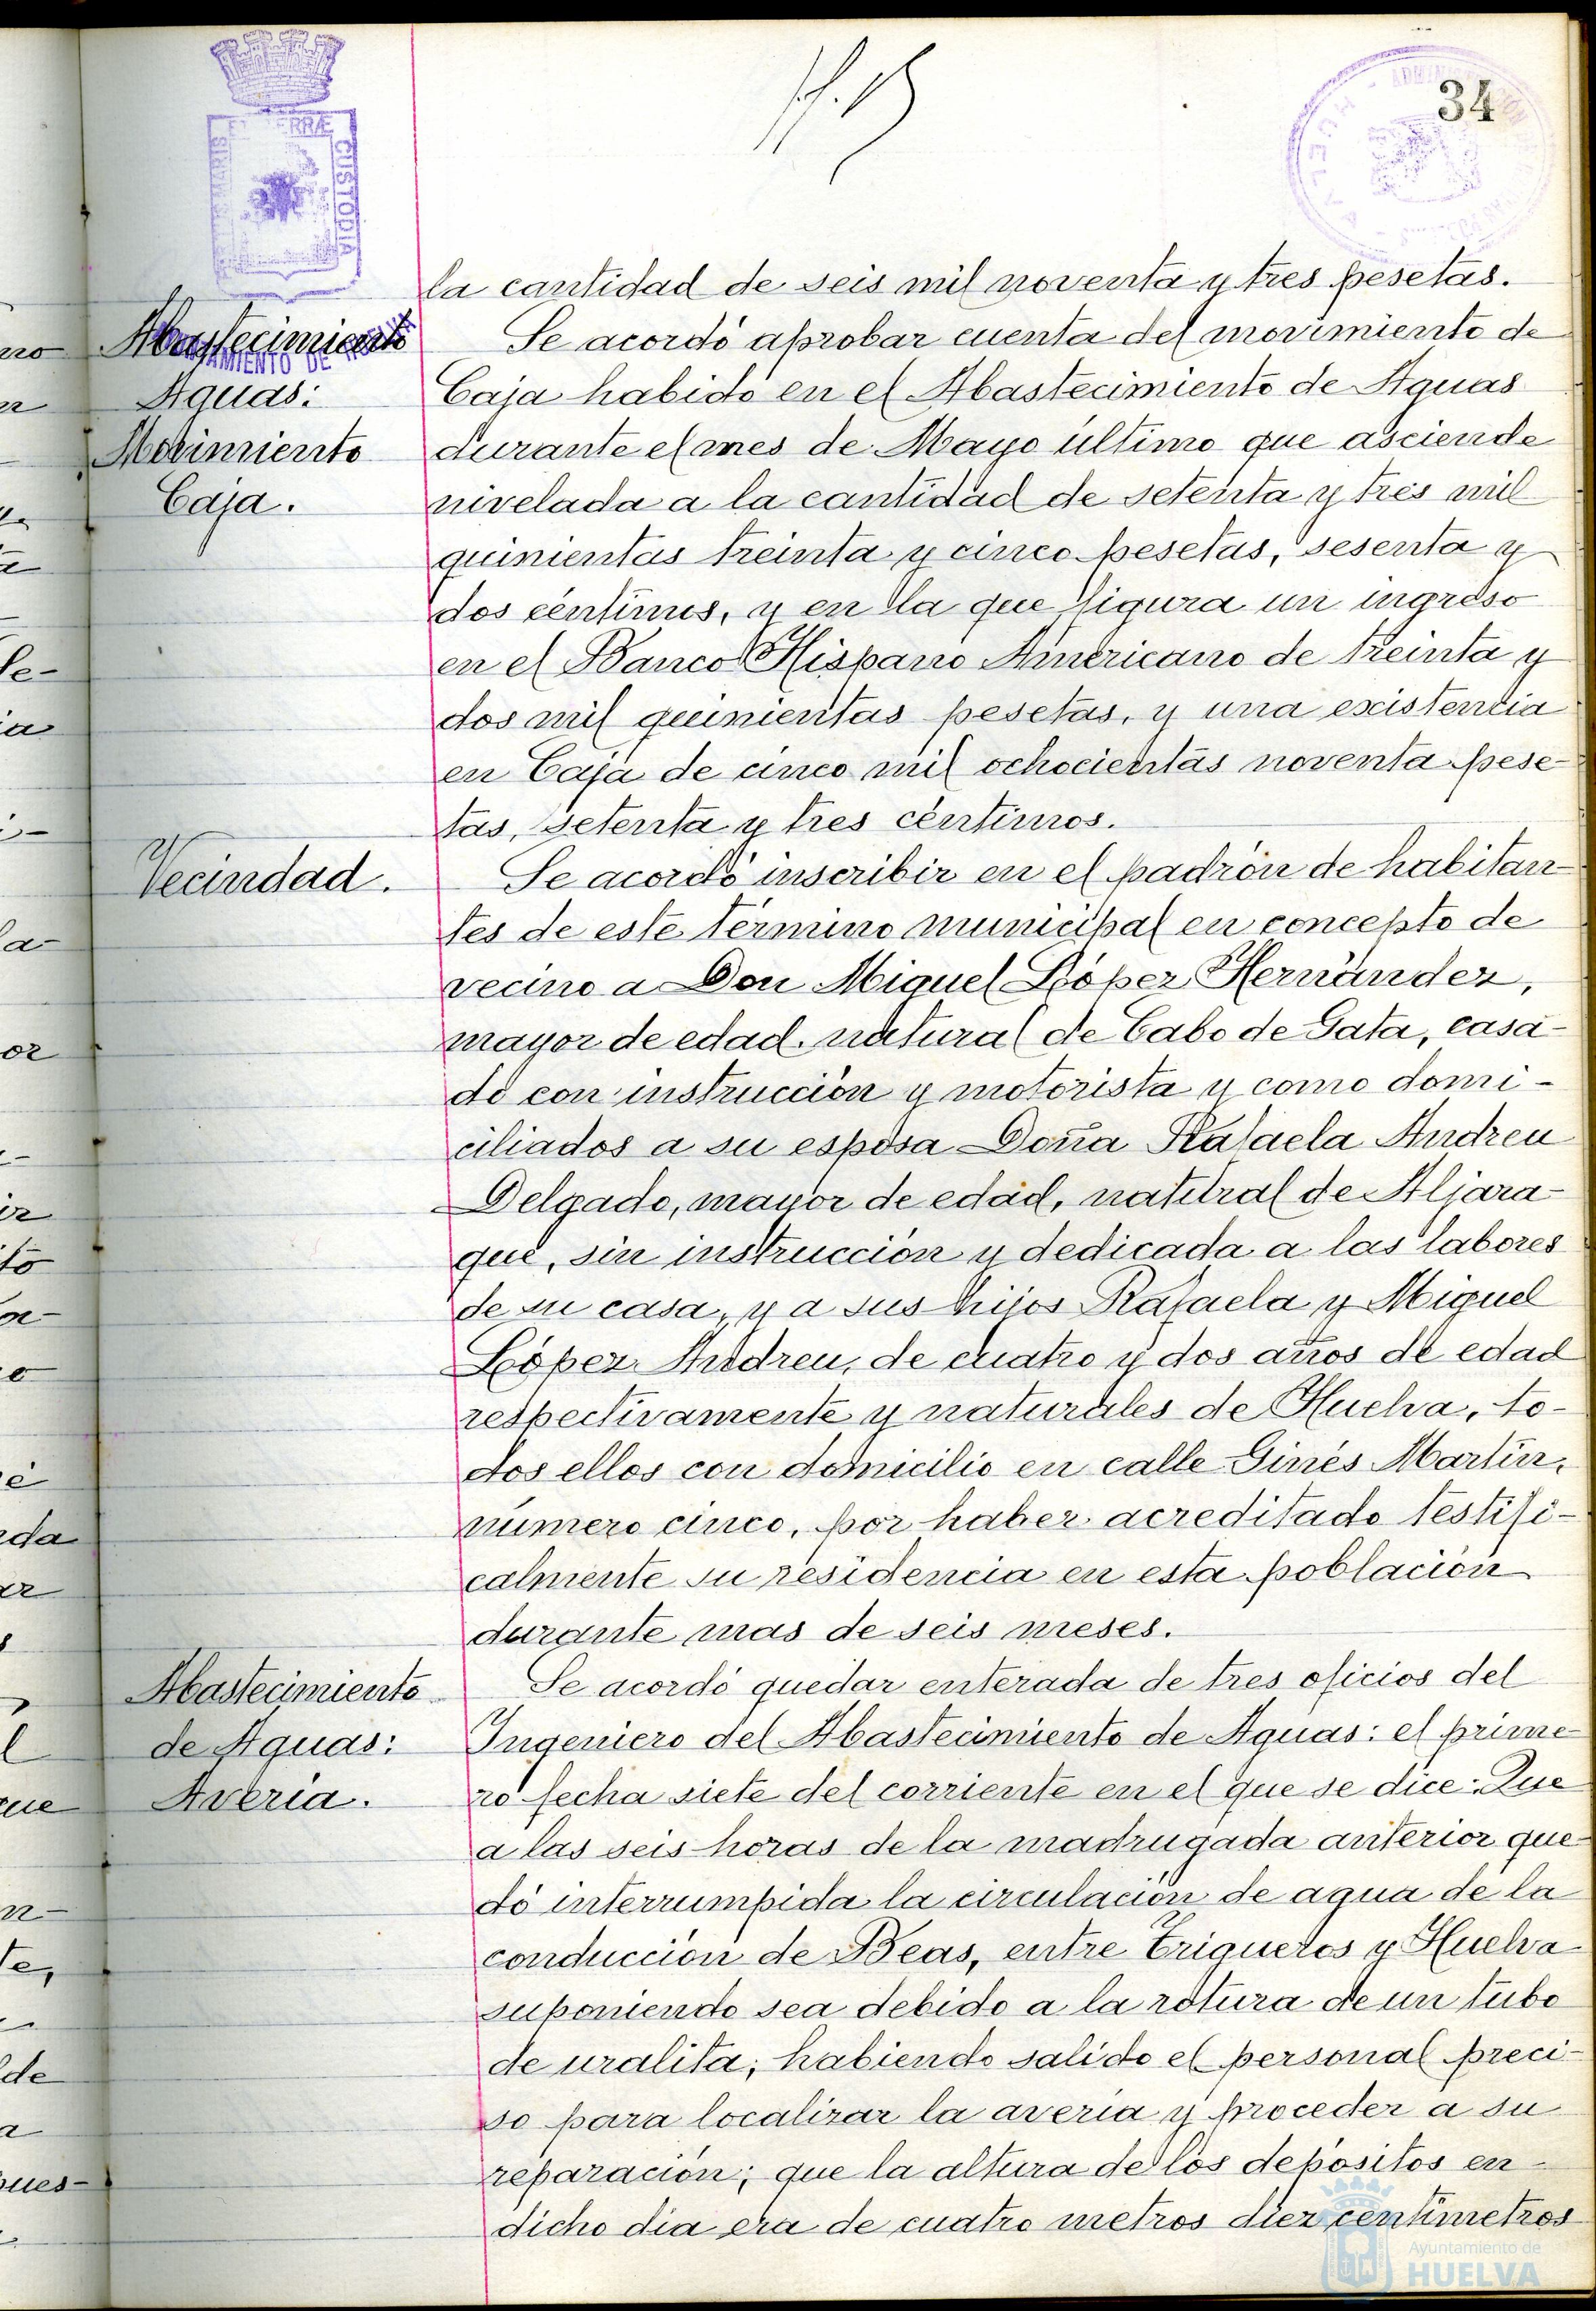 34
la cantidad de seis mil noventa y tres pesetas.
Abastecimiento
Aguas:
Movimiento
Caja.
Se acordó aprobar cuenta del movimiento de
Caja habido en el Abastecimiento de Aguas
durante el mes de Mayo último que asciende
nivelada a la cantidad de setenta y tres mil
quinientas treinta y cinco pesetas, sesenta y
dos céntimos, y en la que figura un ingreso
en el Banco Hispano Americano de treinta y
dos mil quinientas pesetas, y una existencia
en Caja de cinco mil ochocientas noventa pese-
tas, setenta y tres céntimos.
Vecindad.
Se acordó inscribir en el padrón de habitan-
tes de este término municipal en concepto de
vecino a Don Miguel López Hernández,
mayor de edad, natural de Cabo de Gata, casa-
do con instrucción y motorista y como domi-
ciliados a su esposa Doña Rafaela Andreu
Delgado, mayor de edad, natural de Aljara-
que, sin instrucción y dedicada a las labores
de su casa, y a sus hijos Rafaela y Miguel
López Andreu, de cuatro y dos años de edad
respectivamente y naturales de Huelva, to-
dos ellos con domicilio en calle Ginés Martín,
número cinco, por haber acreditado testifi-
calmente su residencia en esta población
durante mas de seis meses.
Abastecimiento
de Aguas:
Avería.
Se acordó quedar enterada de tres oficios del
Ingeniero del Abastecimiento de Aguas: el prime-
ro fecha siete del corriente en el que se dice: Que
a las seis horas de la madrugada anterior que-
dó interrumpida la circulación de agua de la
conducción de Beas, entre Trigueros y Huelva
suponiendo sea debido a la rotura de un tubo
de uralita; habiendo salido el personal preci-
so para localizar la avería y proceder a su
reparación; que la altura de los depósitos en
dicho día era de cuatro metros diez centímetros
Ayuntamiento de
HUELVA